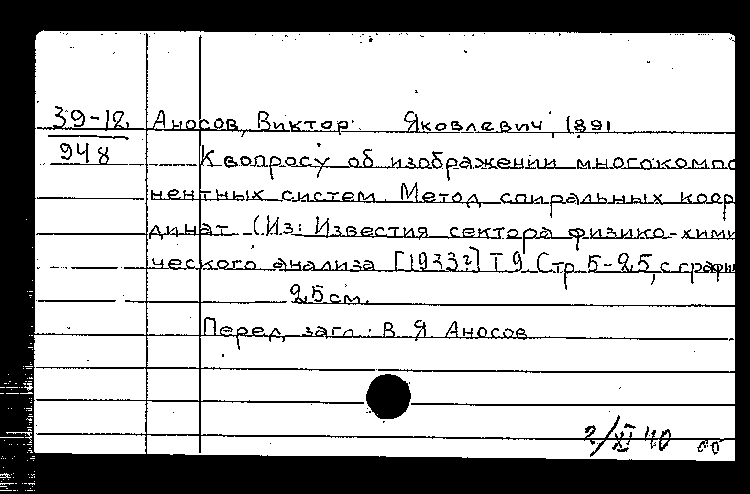 39-12 Аносов, Виктор Яковлевич, 1891
948
К вопросу об изображении многокомпо
нентных систем. Метод спиральных коор
динат. (Из: Известия сектора физико-хими
ческого анализа [1933?] Т 9. Стр. 5-25, с графи
25 см.
Перед загл.: В. Я. Аносов
2/XI 40